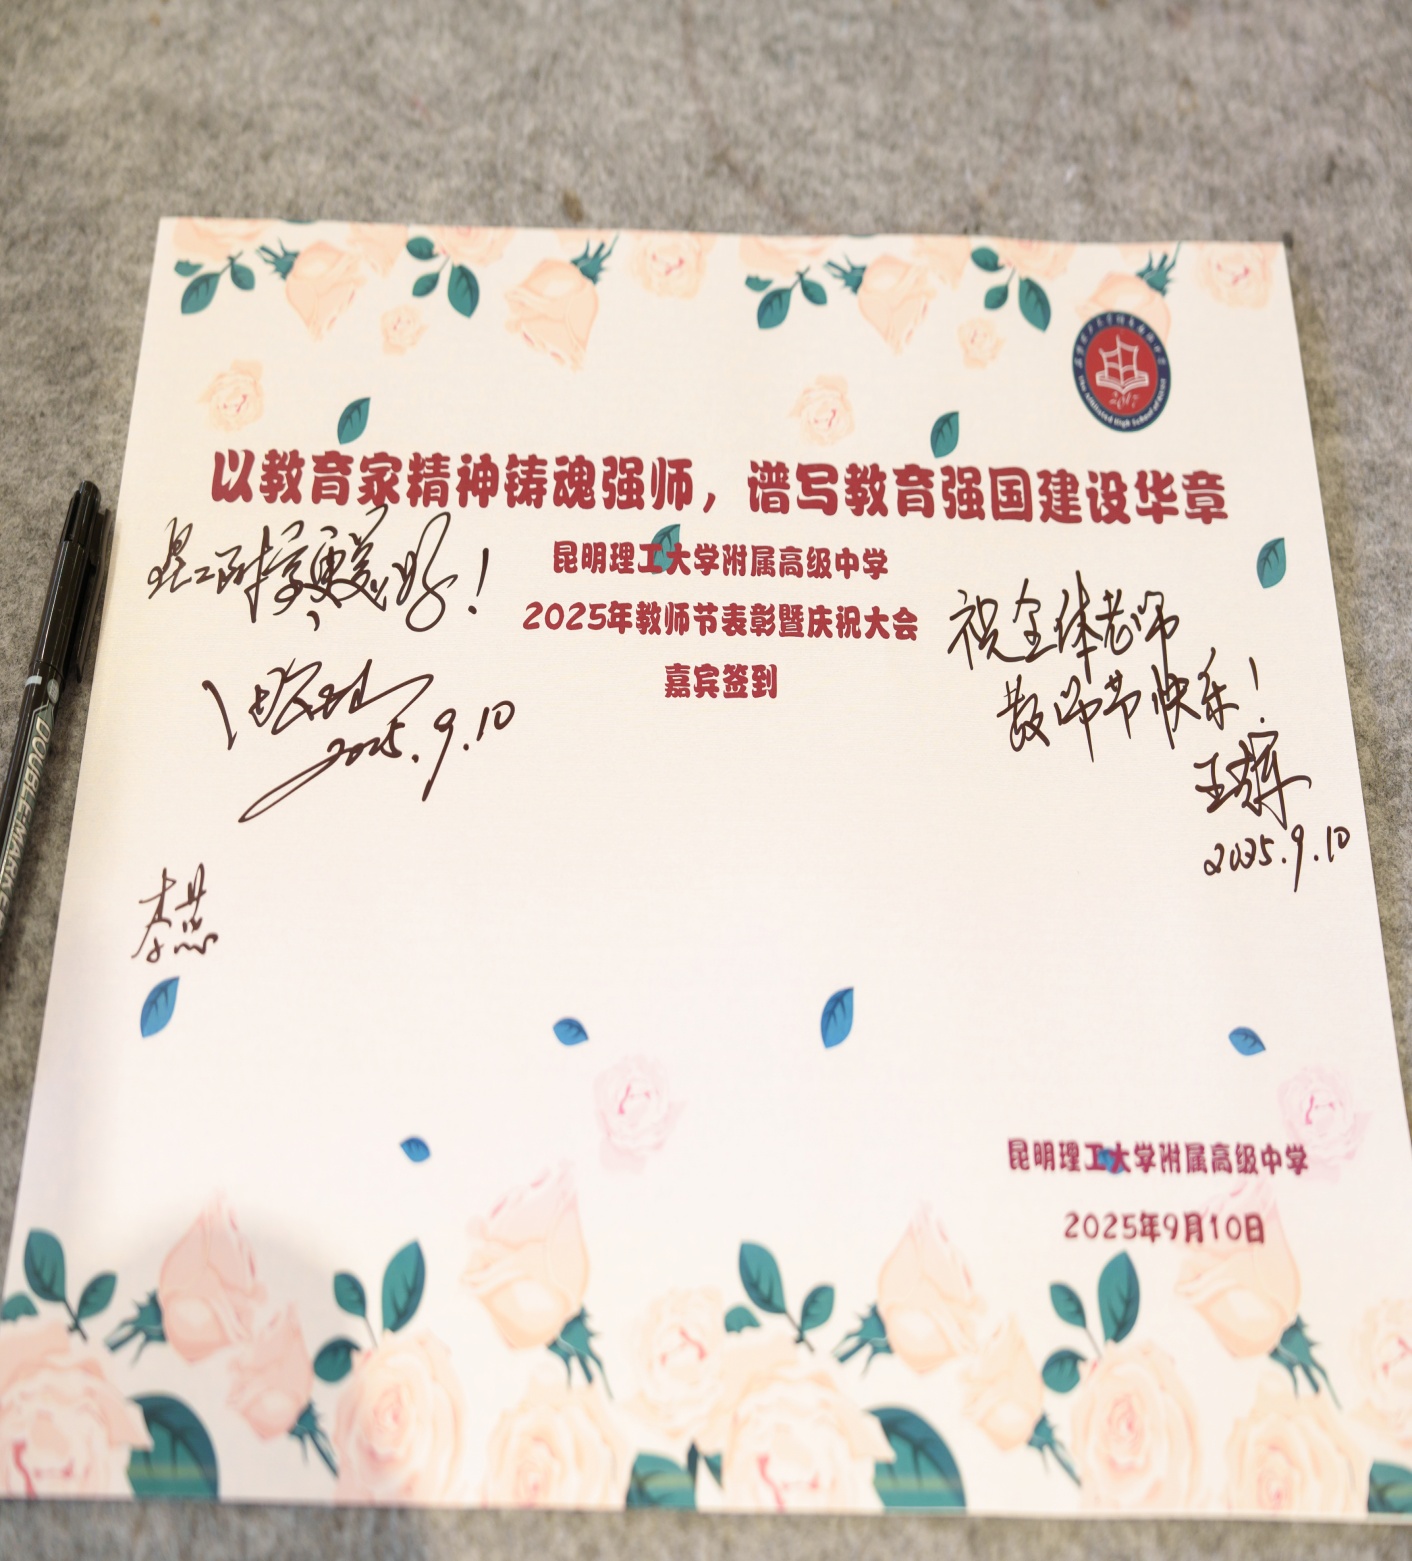 以教育家精神铸魂强师，谱写教育强国建设华章
昆明理工大学附属高级中学
2025年教师节表彰暨庆祝大会
嘉宾签到
昆工附学更美好！
2025.9.10
祝全体老师
教师节快乐！
王辉
2025.9.10
昆明理工大学附属高级中学
2025年9月10日
DOUBLE-MARK